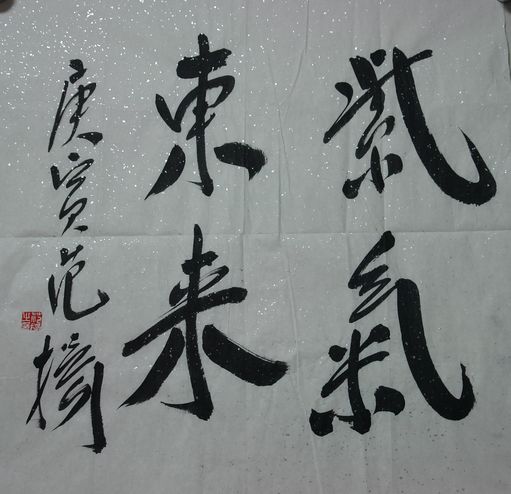 紫氣
東来
庚寅范